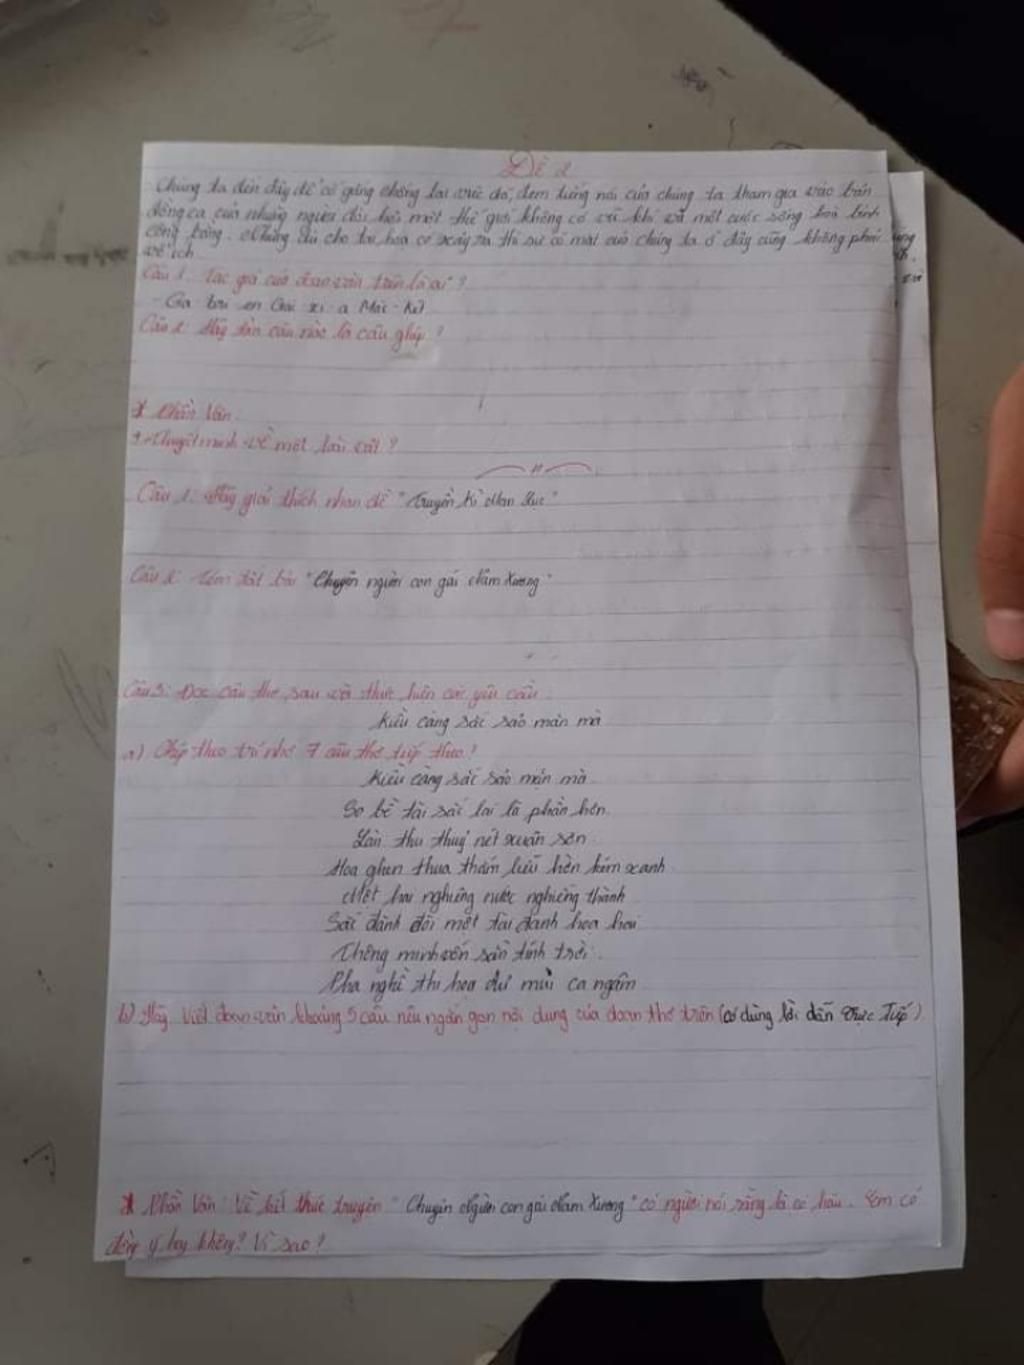 Đề 2
Chúng ta đến đây để cố gắng chống lại việc đó, đem tiếng nói của chúng ta tham gia vào bản
đồng ca của những người đòi hỏi một thế giới không có vũ khí và một cuộc sống hoà bình
công bằng. Nhưng dù cho tai hoạ có xảy ra thì sự có mặt của chúng ta ở đây cũng không phải
vô ích
Câu 1: Tác giả của đoạn văn trên là ai?
- Ga bri en Gác xi a Mác - Két
Câu 2: Hãy tìm câu nào là câu ghép?
* Phần Văn.
Thuyết minh về một loài vật?
Câu 1: Hãy giải thích nhan đề "Truyền Kì Mạn Lục"
Câu 2: Tóm tắt bài "Chuyện người con gái Nam Xương"
Câu 3: Đọc câu thơ sau và thực hiện các yêu cầu:
Kiều càng sắc sảo mặn mà
a) Chép theo trí nhớ 7 câu thơ tiếp theo!
Kiều càng sắc sảo mặn mà
So bề tài sắc lại là phần hơn.
Làn thu thuỷ nét xuân sơn
Hoa ghen thua thắm liễu hờn kém xanh
Một hai nghiêng nước nghiêng thành
Sắc đành đòi một tài đành hoạ hai
Thông minh vốn sẵn tính trời.
Pha nghề thi hoạ đủ mùi ca ngâm
b) Hãy viết đoạn văn khoảng 5 câu nêu ngắn gọn nội dung của đoạn thơ trên (có dùng lời dẫn trực tiếp)
* Phần Văn: Về kết thúc truyện "Chuyện Người con gái Nam Xương" có người nói rằng là có hậu. Em có
đồng ý hay không? Vì sao?